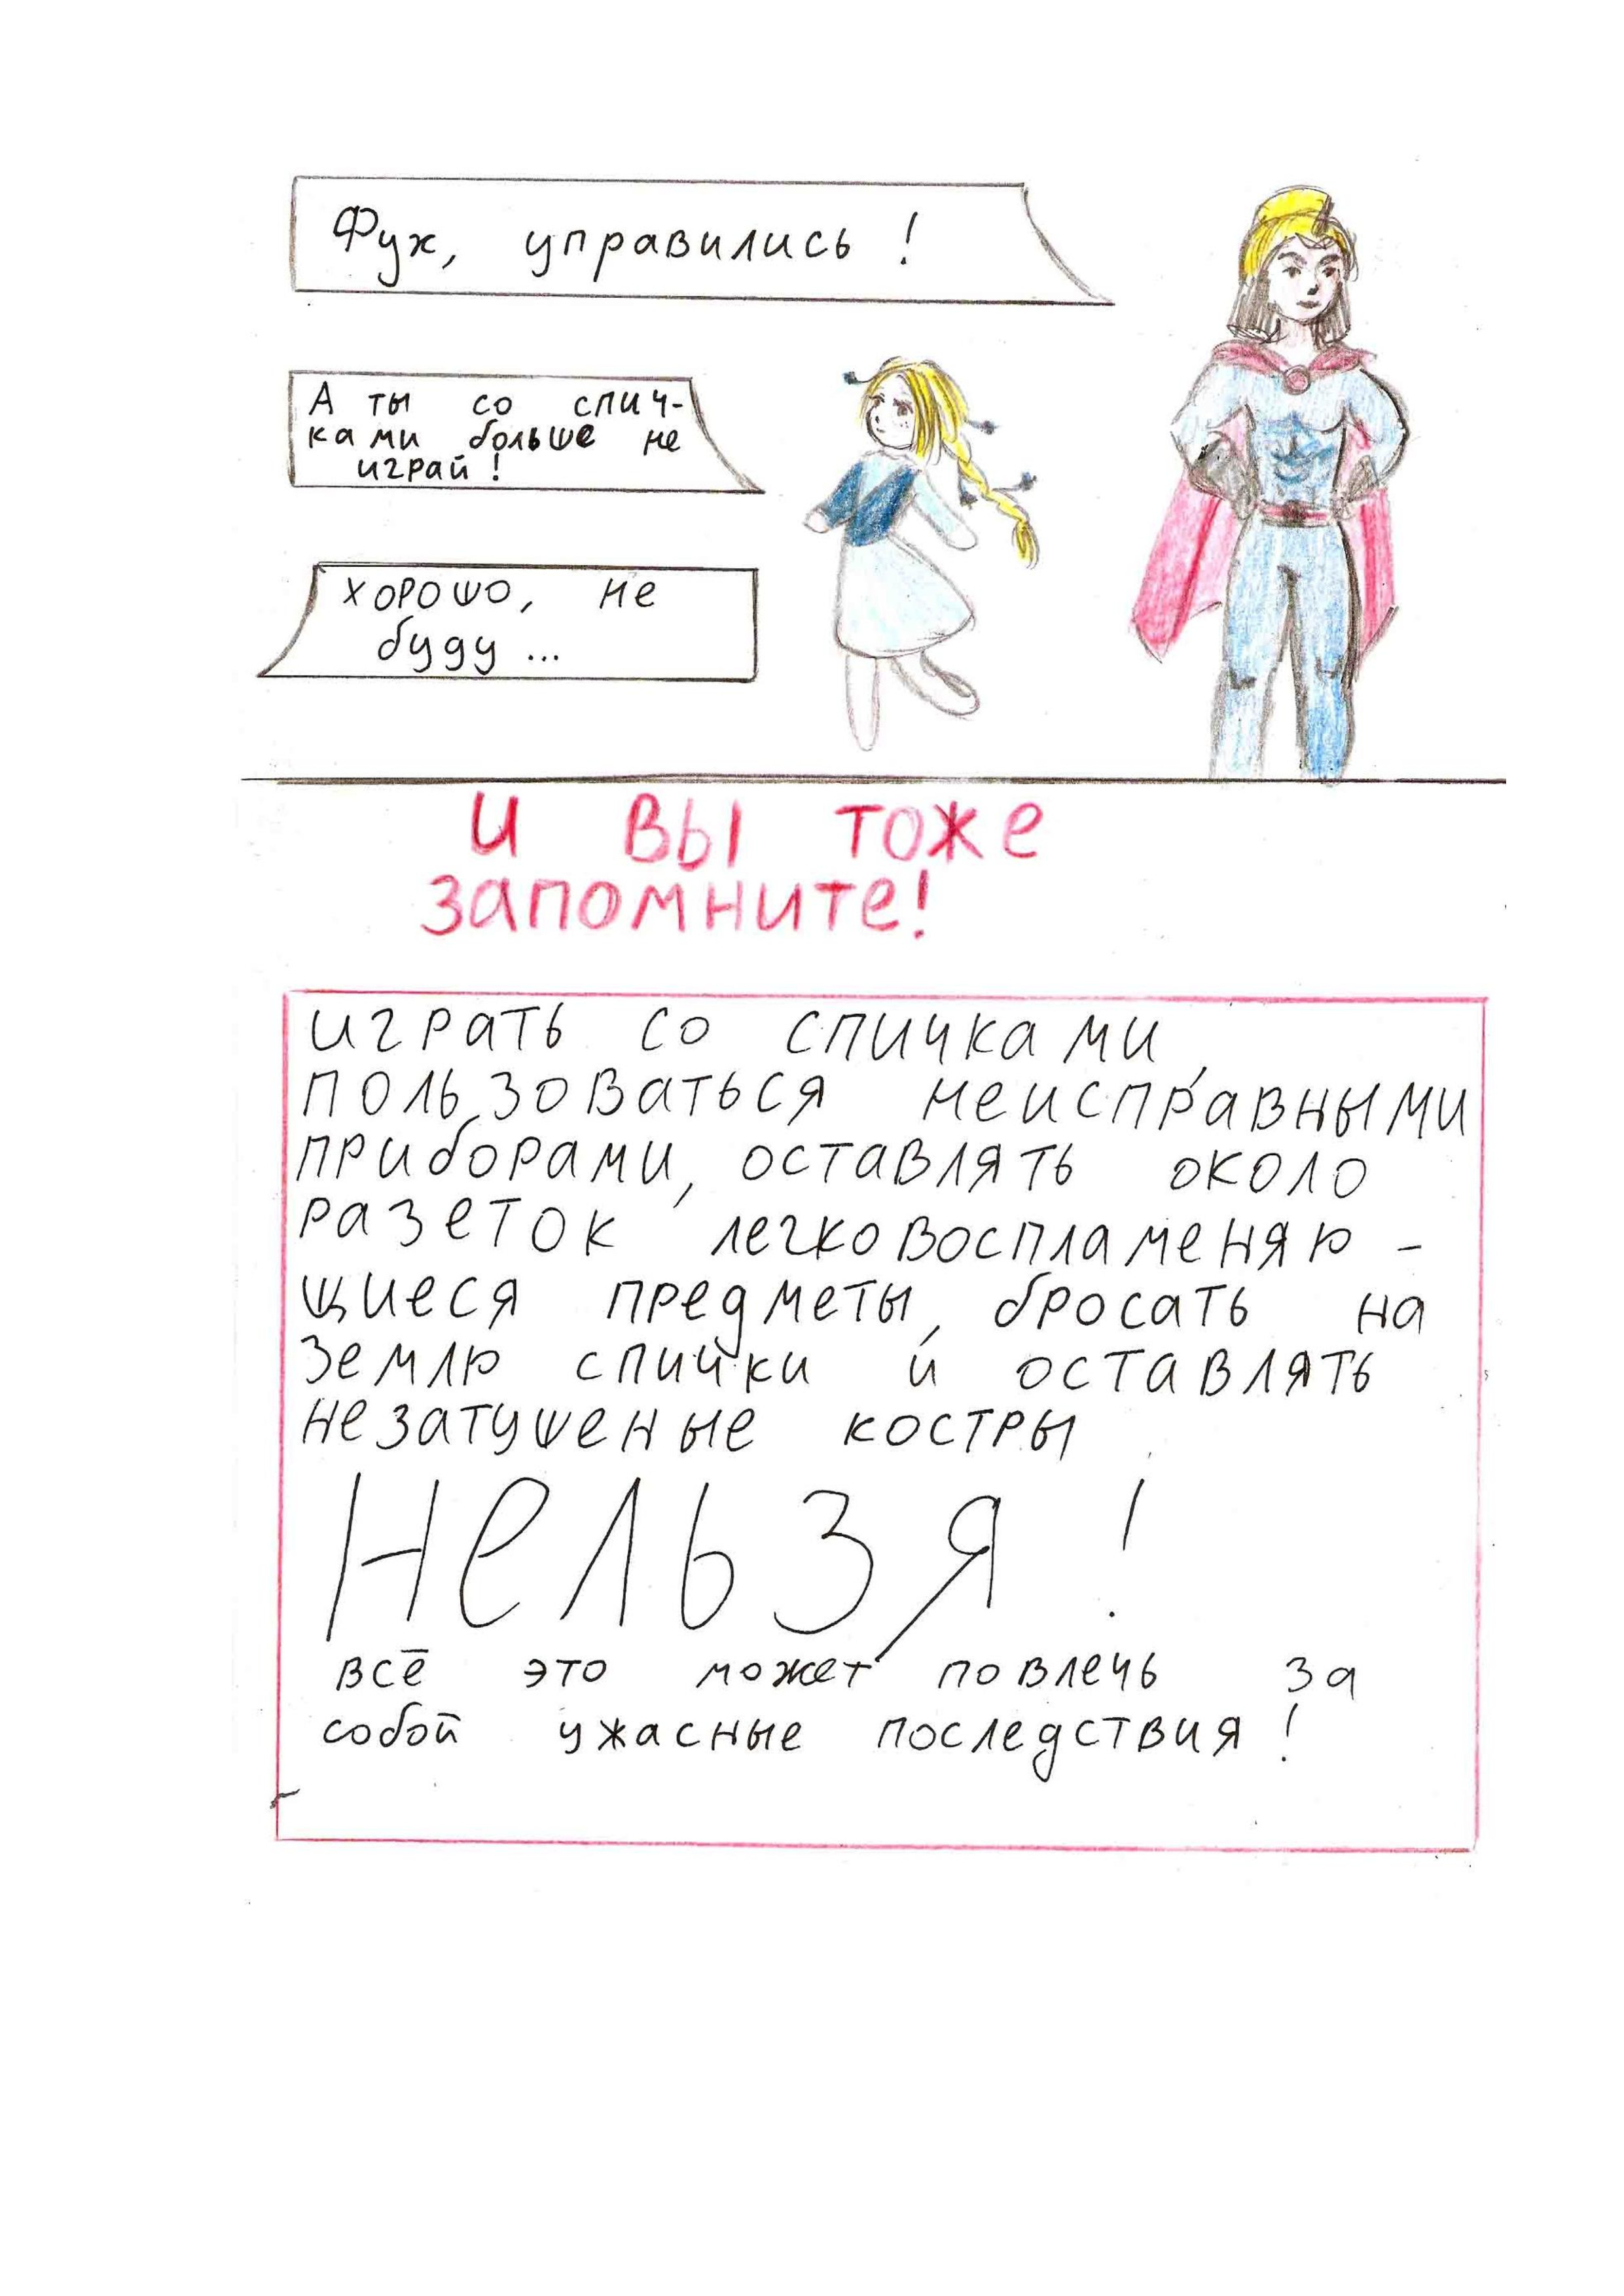 Фух, управились!
А ты со спич-
ками больше не
играй!
хорошо, не
буду...
И вы тоже
запомните!
играть со спичками,
пользоваться неисправными
приборами, оставлять около
разеток легковоспламеняю-
щиеся предметы, бросать на
землю спички и оставлять
незатушеные костры
Нельзя!
всё это может повлечь за
собой ужасные последствия!